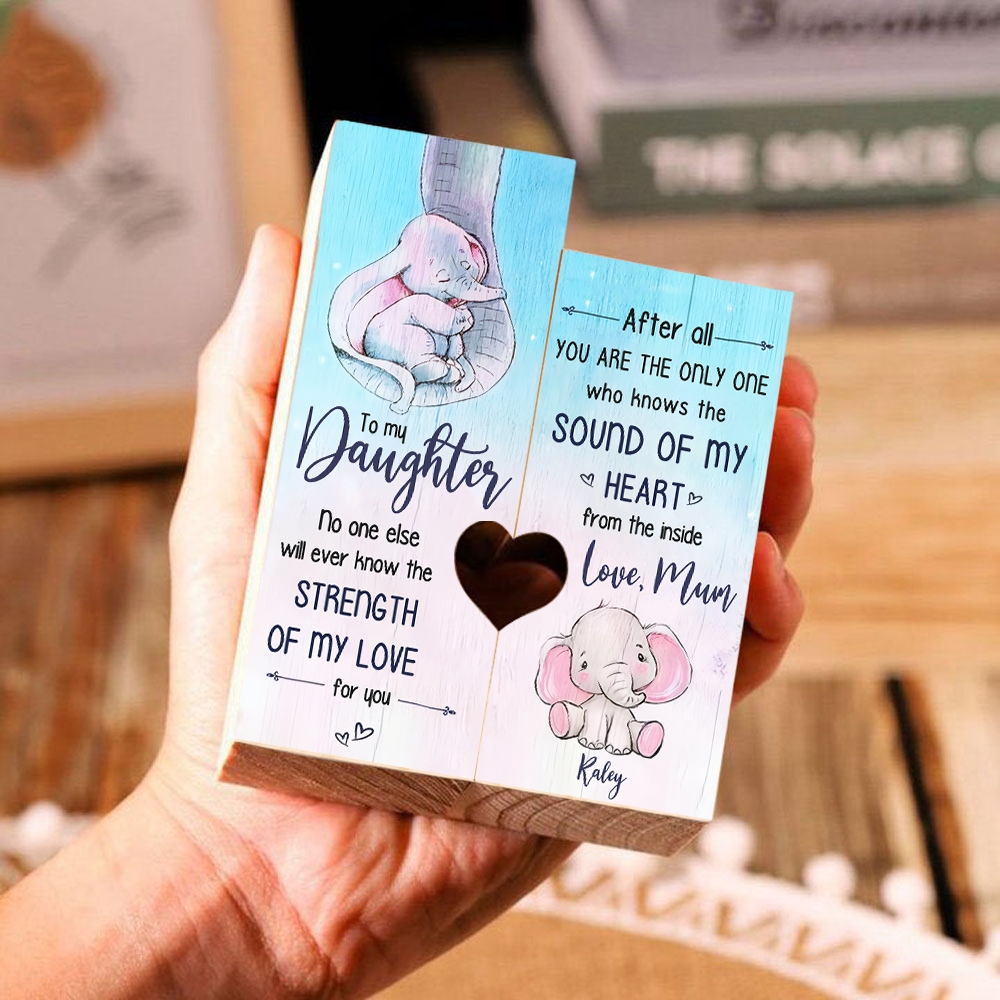 To my
Daughter
No one else
will ever know the
STRENGTH
OF MY LOVE
for you
After all
YOU ARE THE ONLY ONE
who knows the
SOUND OF MY
HEART
from the inside
Love, Mum
Raley
THE SOLACE